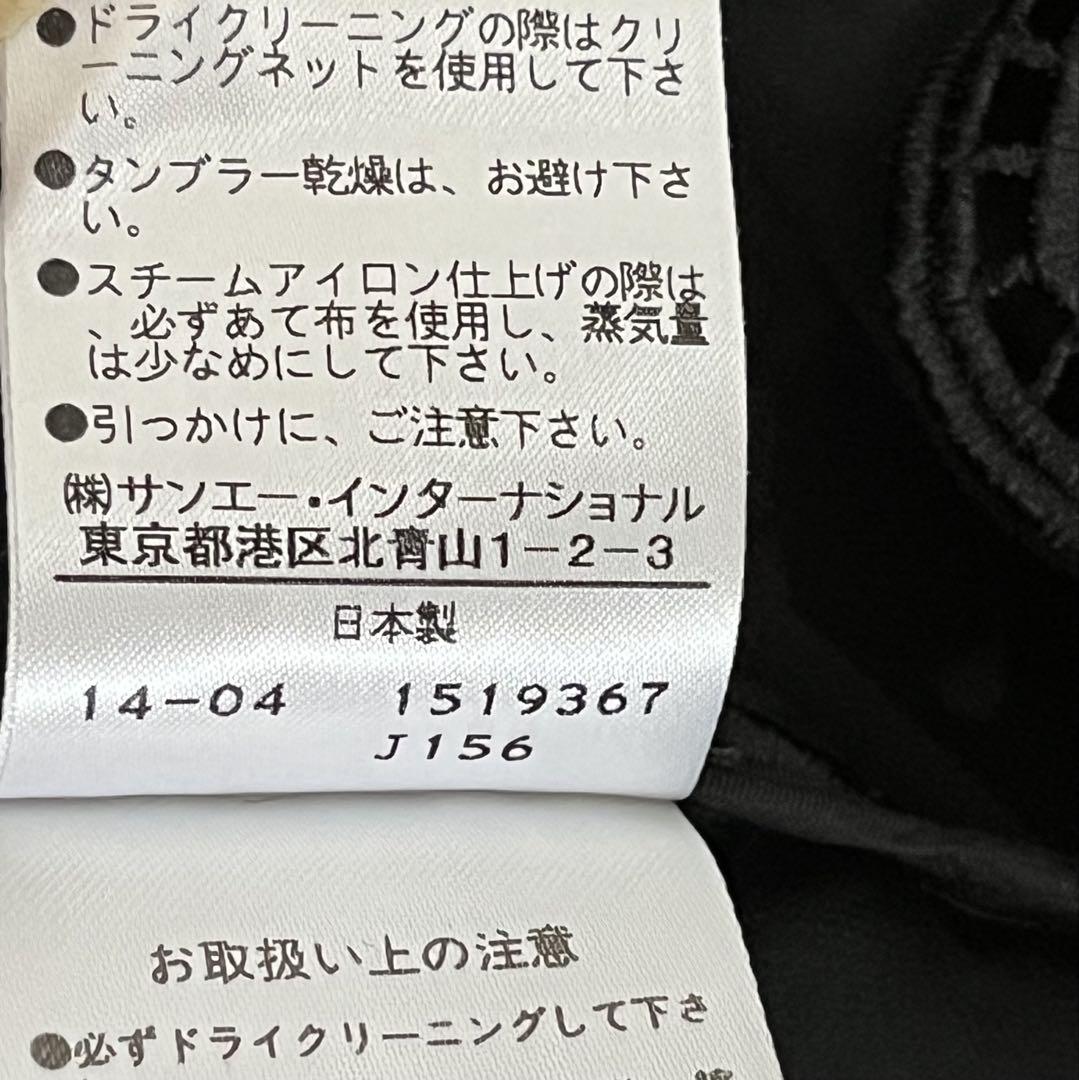 ●ドライクリーニングの際はクリ
ーニングネットを使用して下さ
い。
●タンブラー乾燥は、お避け下さ
い。
●スチームアイロン仕上げの際は
、必ずあて布を使用し、蒸気量
は少なめにして下さい。
●引っかけに、ご注意下さい。
㈱サンエー・インターナショナル
東京都港区北青山1-2-3
日本製
14-04 1519367
J156
お取扱い上の注意
●必ずドライクリーニングして下さ